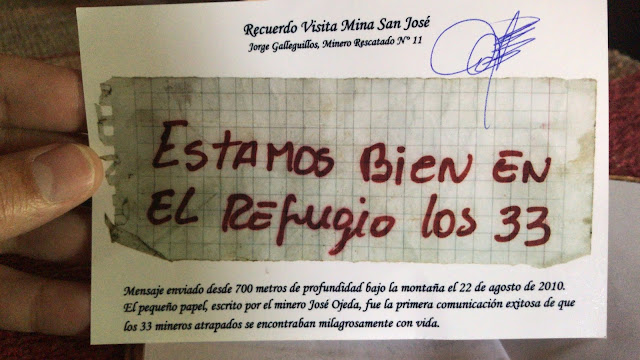 Recuerdo Visita Mina San José
Jorge Galleguillos, Minero Rescatado N° 11
ESTAMOS BIEN EN
EL REFUGIO los 33
Mensaje enviado desde 700 metros de profundidad bajo la montaña el 22 de agosto de 2010.
El pequeño papel, escrito por el minero José Ojeda, fue la primera comunicación exitosa de que
los 33 mineros atrapados se encontraban milagrosamente con vida.